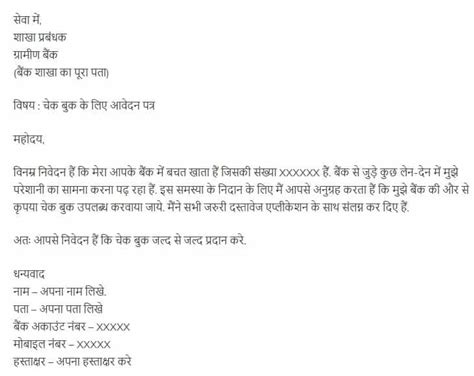 सेवा में,
शाखा प्रबंधक
ग्रामीण बैंक
(बैंक शाखा का पूरा पता)
विषय : चेक बुक के लिए आवेदन पत्र
महोदय,
विनम्र निवेदन हैं कि मेरा आपके बैंक में बचत खाता हैं जिसकी संख्या XXXXXX हैं. बैंक से जुड़े कुछ लेन-देन में मुझे
परेशानी का सामना करना पढ़ रहा हैं. इस समस्या के निदान के लिए मैं आपसे अनुग्रह करता हैं कि मुझे बैंक की और से
कृपया चेक बुक उपलब्ध करवाया जाये. मैंने सभी जरुरी दस्तावेज एप्लीकेशन के साथ संलग्न कर दिए हैं.
अतः आपसे निवेदन हैं कि चेक बुक जल्द से जल्द प्रदान करे.
धन्यवाद
नाम – अपना नाम लिखे.
पता – अपना पता लिखे
बैंक अकाउंट नंबर – XXXXX
मोबाइल नंबर – XXXXX
हस्ताक्षर – अपना हस्ताक्षर करे